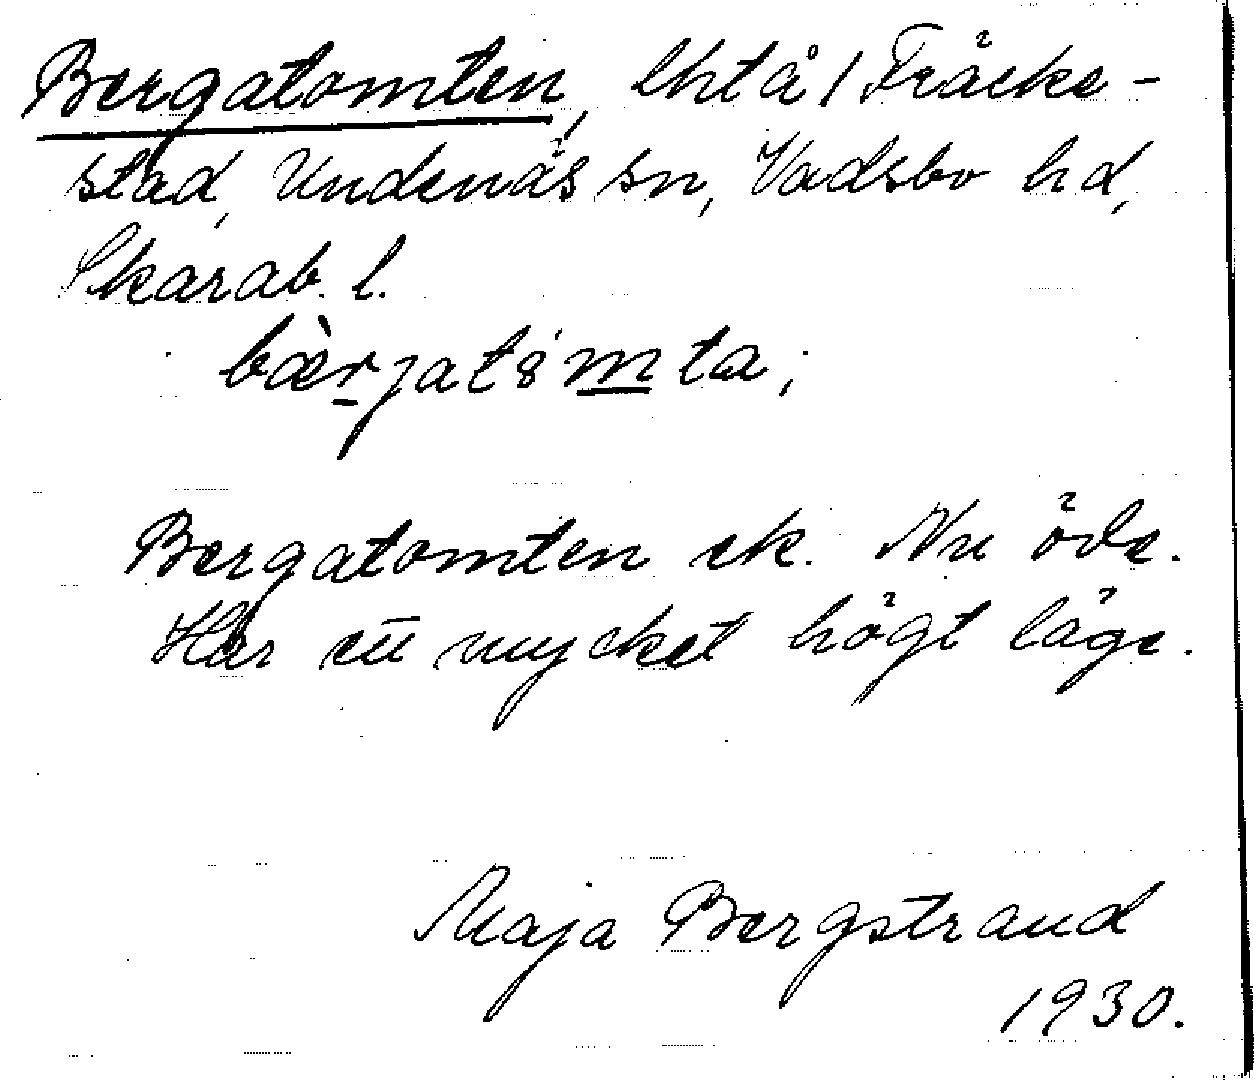 Bergatomten, lht å / Fräcke-
stad, Undenäs sn, Vadsbo hd,
Skarab. l.
bær̲jatȯm̲ta;
Bergatomten ek. Nu öde.
Har ett mycket högt läge.
Maja Bergstrand
1930.